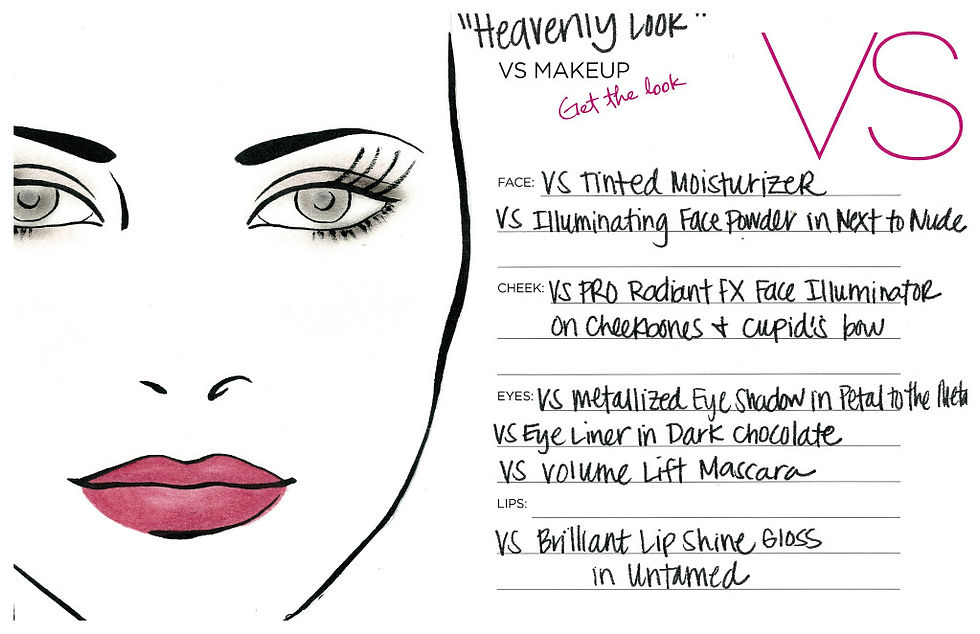 "Heavenly Look"
VS MAKEUP
Get the look
VS
FACE: VS Tinted Moisturizer
VS Illuminating Face Powder in Next to Nude
CHEEK: VS PRO Radiant FX Face Illuminator
on Cheekbones + cupid's bow
EYES: VS Metallized Eye Shadow in Petal to the Meta
VS Eye Liner in Dark Chocolate
VS Volume Lift Mascara
LIPS:
VS Brilliant Lip Shine Gloss
in Untamed